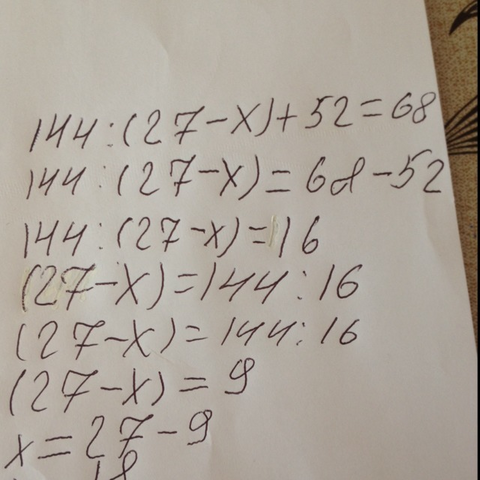 144:(27-x)+52=68
144:(27-x)=68-52
144:(27-x)=16
(27-x)=144:16
(27-x)=144:16
(27-x)=9
x=27-9
18